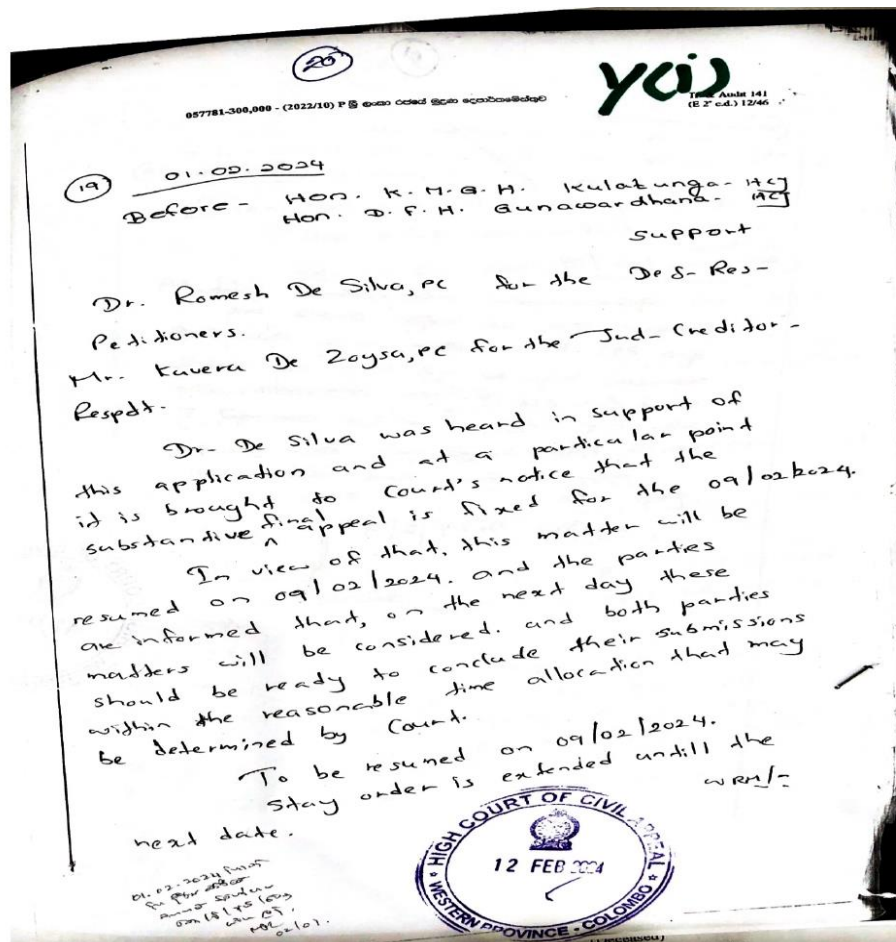 20
Y(i)
Audit 141
057781-300,000 - (2022/10) P ශ්‍රී ලංකා රජයේ මුද්‍රණ දෙපාර්තමේන්තුව
(E 2" c.d.) 12/46
19 01.02.2024
Before - Hon. K. M. G. H. Kulatunga - HCJ
Hon. D. F. H. Gunawardhana - HCJ
Support
Dr. Romesh De Silva, PC for the Def-Res-
Petitioners.
Mr. Kuvera De Zoysa, PC for the Jud-Creditor-
Respdt.
Dr. De Silva was heard in support of
this application and at a particular point
it is brought to Court's notice that the
substantive final appeal is fixed for the 09/02/2024.
In view of that, this matter will be
resumed on 09/02/2024. and the parties
are informed that, on the next day these
matters will be considered. and both parties
should be ready to conclude their submissions
within the reasonable time allocation that may
be determined by Court.
To be resumed on 09/02/2024.
Stay order is extended untill the
next date.
WRM/-
HIGH COURT OF CIVIL APPEAL
12 FEB 2024
WESTERN PROVINCE - COLOMBO
01.02.2024
02/01.